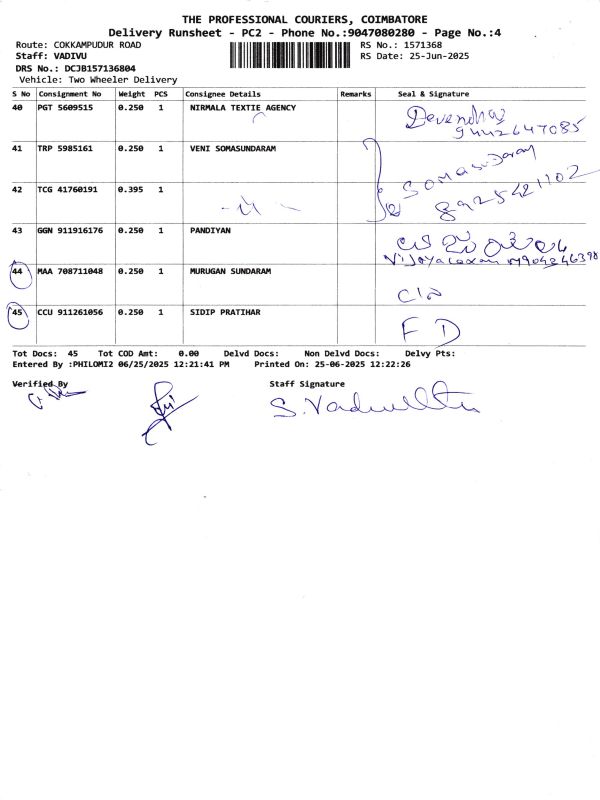 THE PROFESSIONAL COURIERS, COIMBATORE
Delivery Runsheet - PC2 - Phone No.:9047080280 - Page No.:4
Route: COKKAMPUDUR ROAD RS No.: 1571368
Staff: VADIVU RS Date: 25-Jun-2025
DRS No.: DCJB157136804
Vehicle: Two Wheeler Delivery
S No Consignment No Weight PCS Consignee Details Remarks Seal & Signature
40 PGT 5609515 0.250 1 NIRMALA TEXTIE AGENCY
9442647085
41 TRP 5985161 0.250 1 VENI SOMASUNDARAM Somasundaram
42 TCG 41760191 0.395 1 8925421102
43 GGN 911916176 0.250 1 PANDIYAN
44 MAA 708711048 0.250 1 MURUGAN SUNDARAM
45 CCU 911261056 0.250 1 SIDIP PRATIHAR FD
Tot Docs: 45 Tot COD Amt: 0.00 Delvd Docs: Non Delvd Docs: Delvy Pts:
Entered By :PHILOMI2 06/25/2025 12:21:41 PM Printed On: 25-06-2025 12:22:26
Verified By Staff Signature